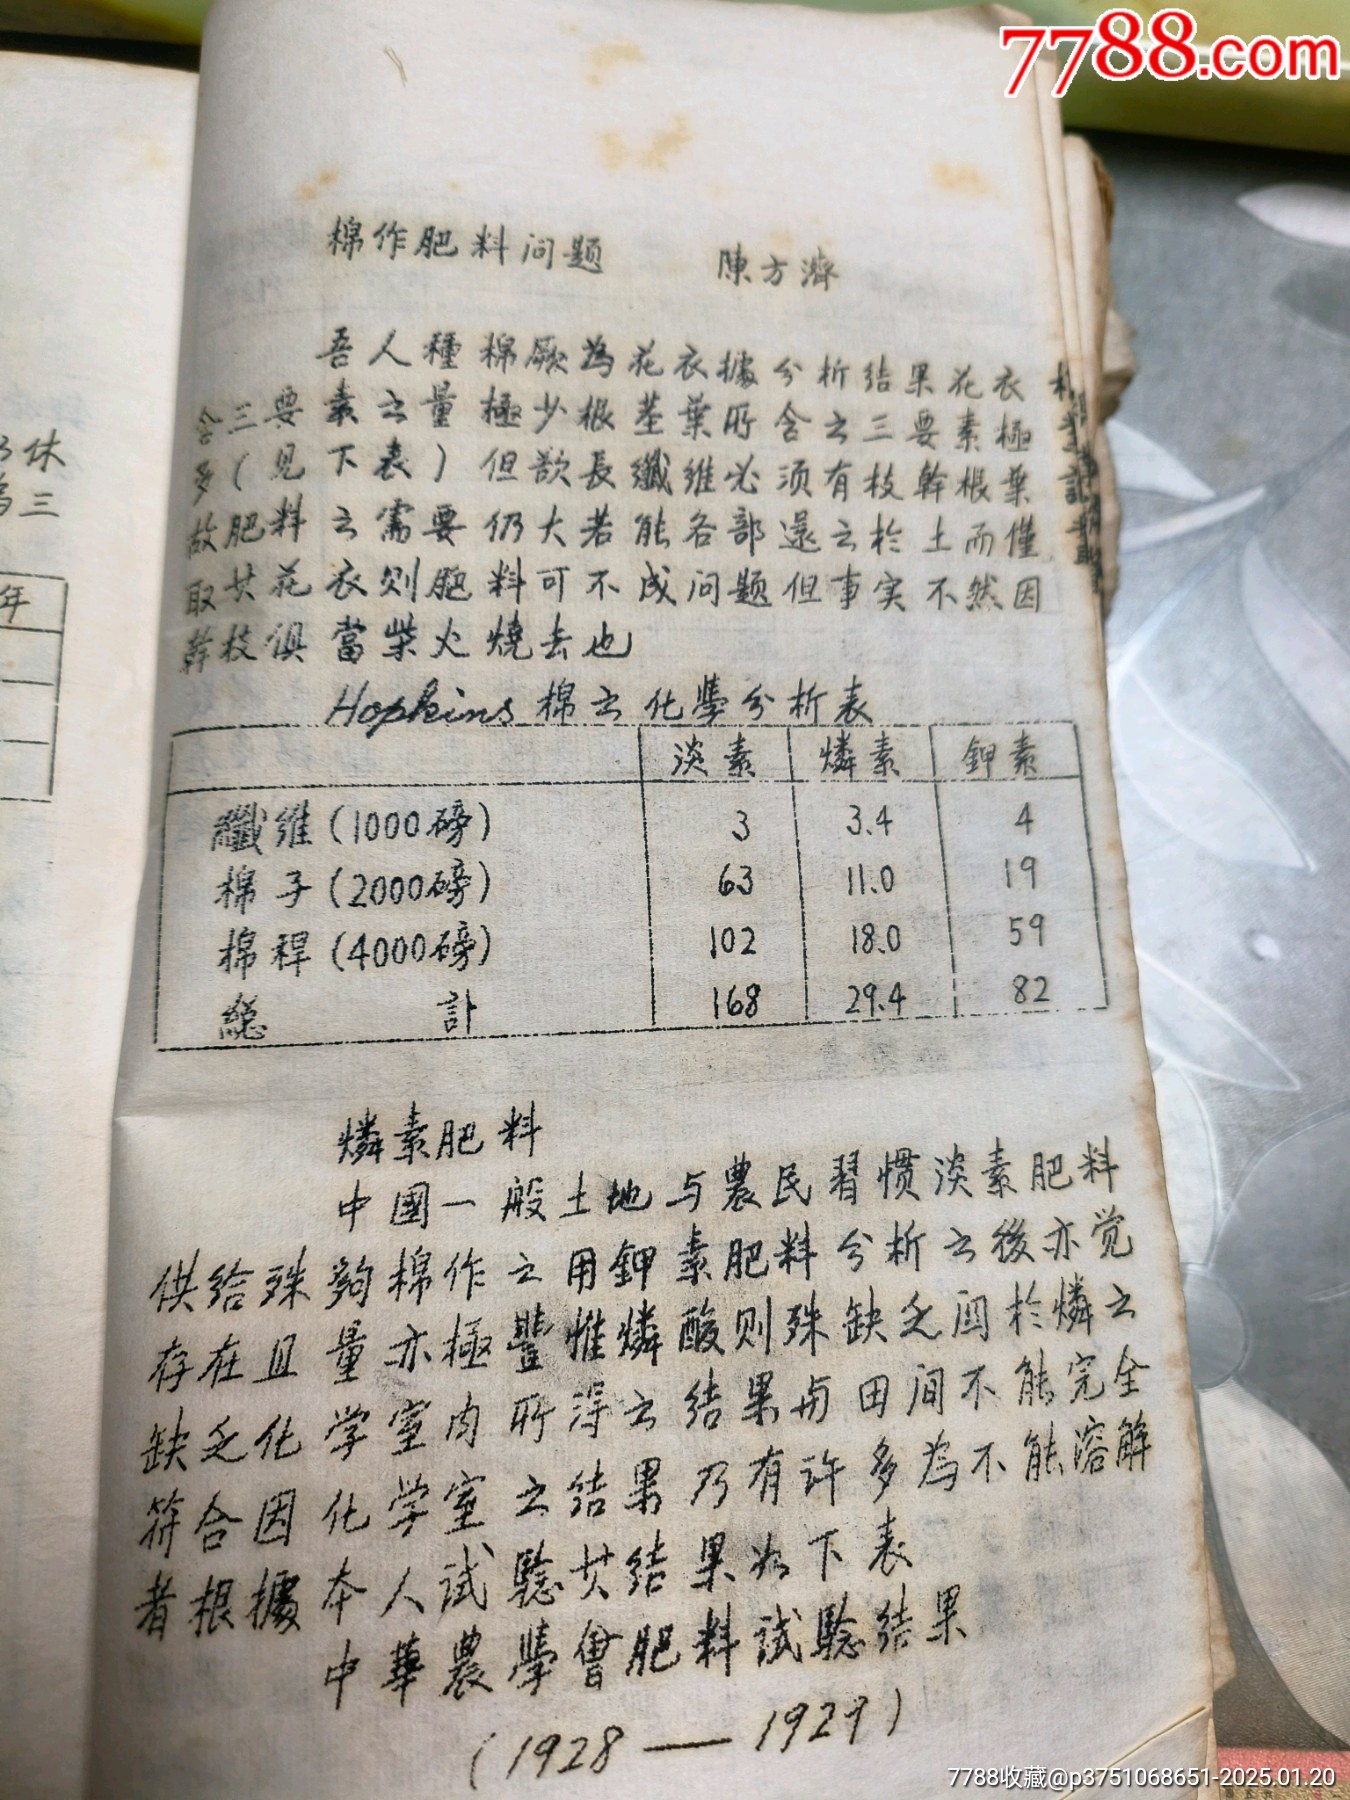 7788.com
棉作肥料问题 陳方濟
吾人種棉厥為花衣據分析结果花衣
含三要素之量極少根茎葉所含之三要素極
多(見下表)但欲長纖維必须有枝幹根葉
故肥料之需要仍大若能各部還之於土而僅
取其花衣则肥料可不成问题但事实不然因
幹枝俱當柴火燒去也
Hopkins棉之化學分析表
淡素 燐素 鉀素
纖维(1000磅) 3 3.4 4
棉子(2000磅) 63 11.0 19
棉稈(4000磅) 102 18.0 59
總計 168 29.4 82
燐素肥料
中國一般土地与農民習惯淡素肥料
供给殊夠棉作之用鉀素肥料分析之後亦觉
存在且量亦極豐惟燐酸则殊缺乏関於燐之
缺乏化学室内所得之结果与田间不能完全
符合因化学室之结果乃有许多為不能溶解
者根據本人试驗其结果如下表
中華農學會肥料试驗结果
(1928——1929)
休
三
年
7788收藏@p3751068651-2025.01.20